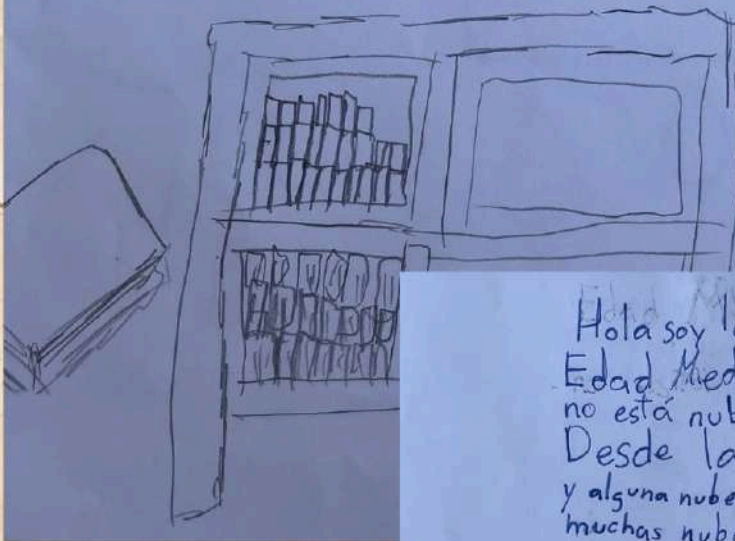 Hola soy l
Edad Med
no está nub
Desde la
y alguna nube
muchas nub